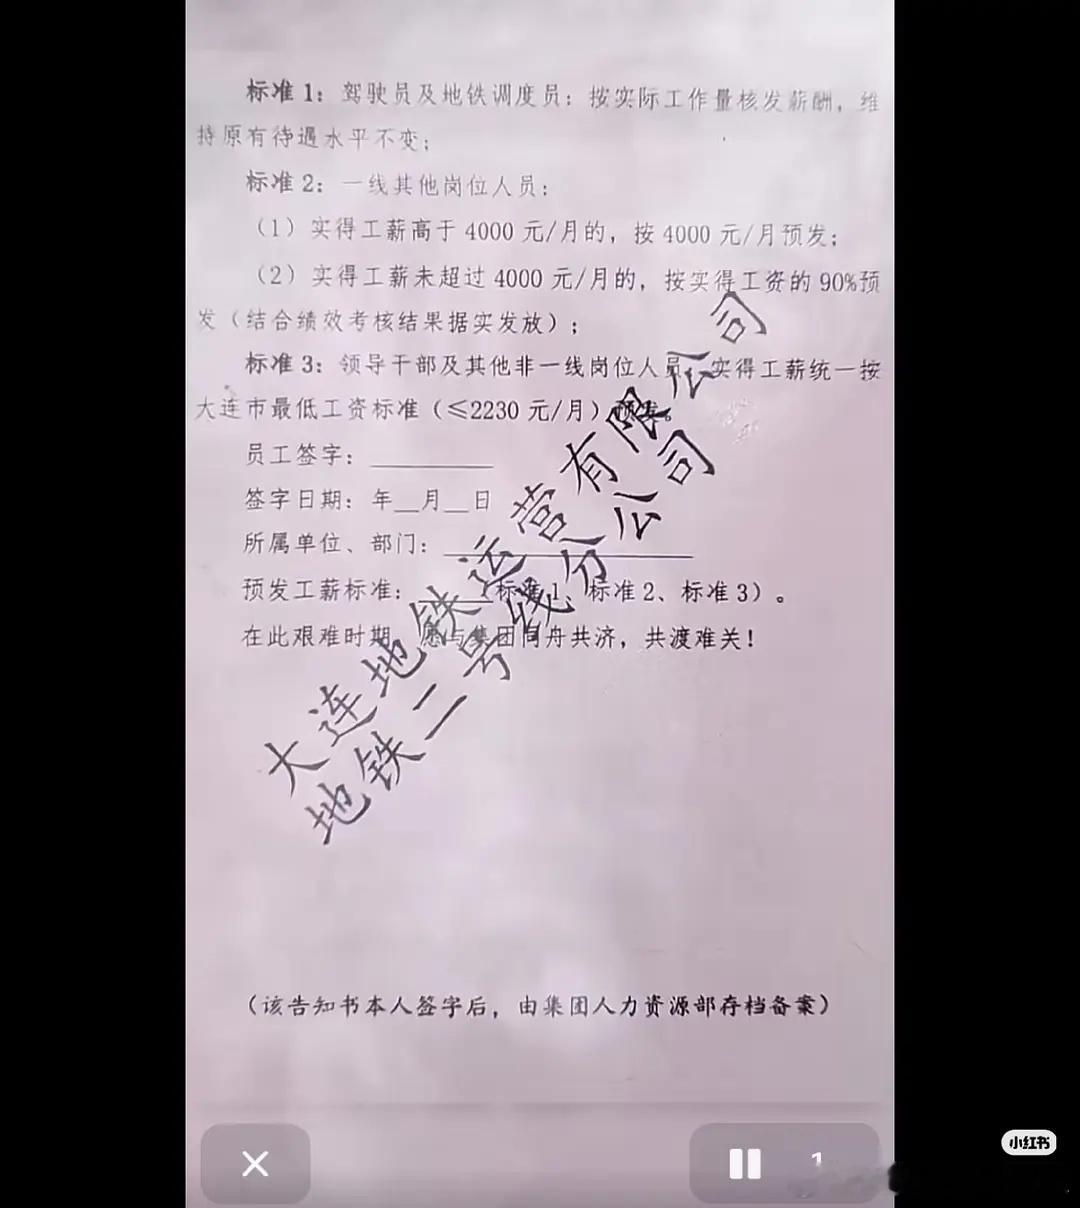 标准1：驾驶员及地铁调度员：按实际工作量核发薪酬，维
持原有待遇水平不变；
标准2：一线其他岗位人员：
（1）实得工薪高于4000元/月的，按4000元/月预发；
（2）实得工薪未超过4000元/月的，按实得工资的90%预
发（结合绩效考核结果据实发放）；
标准3：领导干部及其他非一线岗位人员，实得工薪统一按
大连市最低工资标准（≤2230元/月）预发。
员工签字：
签字日期：年__月__日
所属单位、部门：
预发工薪标准：（标准1、标准2、标准3）。
在此艰难时期，愿与集团同舟共济，共渡难关！
大连地铁运营有限公司
地铁二号线分公司
（该告知书本人签字后，由集团人力资源部存档备案）
1
小红书